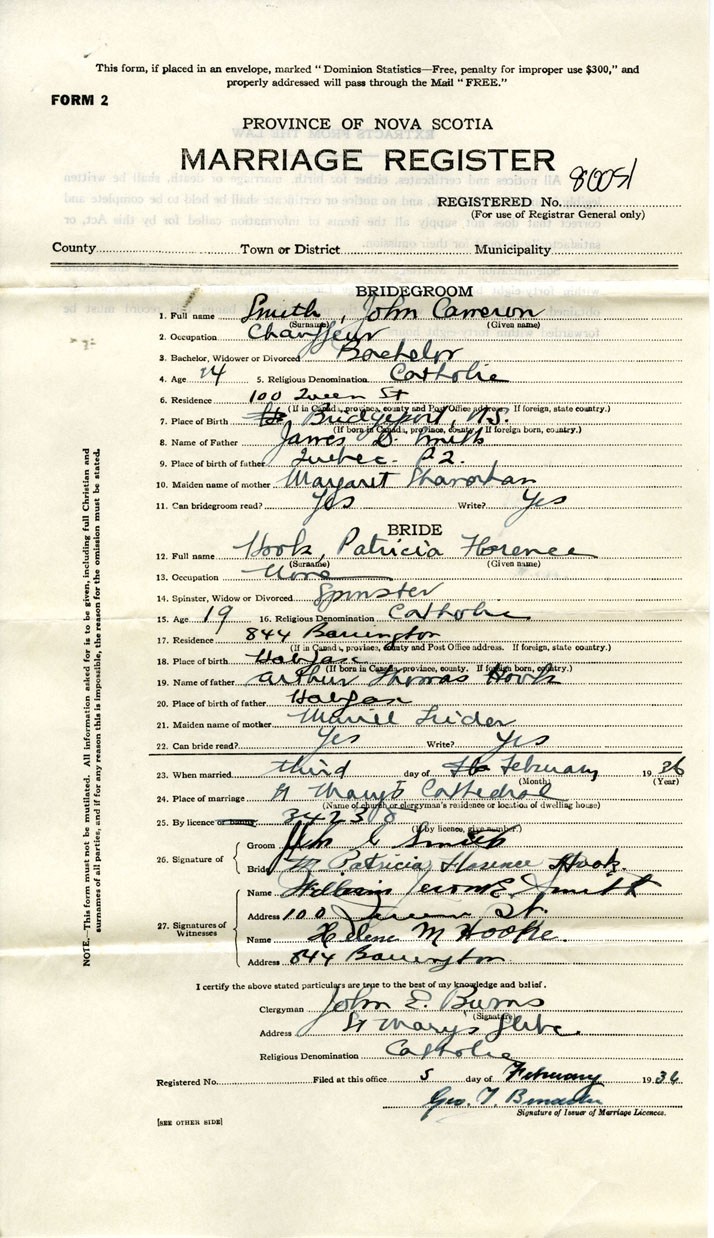 This form, if placed in an envelope, marked "Dominion Statistics—Free, penalty for improper use $300," and
properly addressed will pass through the Mail "FREE."
FORM 2
PROVINCE OF NOVA SCOTIA
MARRIAGE REGISTER
REGISTERED No. 80051
(For use of Registrar General only)
County Town or District Municipality
BRIDEGROOM
1. Full name Smith, John Cameron
(Surname) (Given name)
2. Occupation Chauffeur
3. Bachelor, Widower or Divorced Bachelor
4. Age 24 5. Religious Denomination Catholic
6. Residence 100 Queen St
(If in Canada, province, county and Post Office address. If foreign, state country.)
7. Place of Birth Bridgeport, N.S.
(If born in Canada, province, county. If foreign born, country.)
8. Name of Father James D. Smith
9. Place of birth of father Quebec P.2.
10. Maiden name of mother Margaret
11. Can bridegroom read? Yes Write? Yes
BRIDE
12. Full name Hook, Patricia Florence
(Surname) (Given name)
13. Occupation None
14. Spinster, Widow or Divorced Spinster
15. Age 19 16. Religious Denomination Catholic
17. Residence 844 Barrington
(If in Canada, province, county and Post Office address. If foreign, state country.)
18. Place of birth Halifax
(If born in Canada, province, county. If foreign born, country.)
19. Name of father Arthur Thomas Hook
20. Place of birth of father Halifax
21. Maiden name of mother
22. Can bride read? Yes Write? Yes
23. When married third day of February 1936
(Month) (Year)
24. Place of marriage St Mary's Cathedral
(Name of church or clergyman's residence or location of dwelling house)
25. By licence or banns 34238
(If by licence, give number.)
26. Signature of
Groom John C Smith
Bride M Patricia Florence Hook.
27. Signatures of Witnesses
Name William Jerome Smith
Address 100 Queen St.
Name Helene M Hooke.
Address 844 Barrington
I certify the above stated particulars are true to the best of my knowledge and belief.
Clergyman John E. Burns
(Signature)
Address St Marys Glebe.
Religious Denomination Catholic
Registered No. Filed at this office 5 day of February 1936
Geo. T.
Signature of Issuer of Marriage Licences.
[SEE OTHER SIDE]
NOTE.—This form must not be mutilated. All information asked for is to be given, including full Christian and
surnames of all parties, and if for any reason this is impossible, the reason for the omission must be stated.